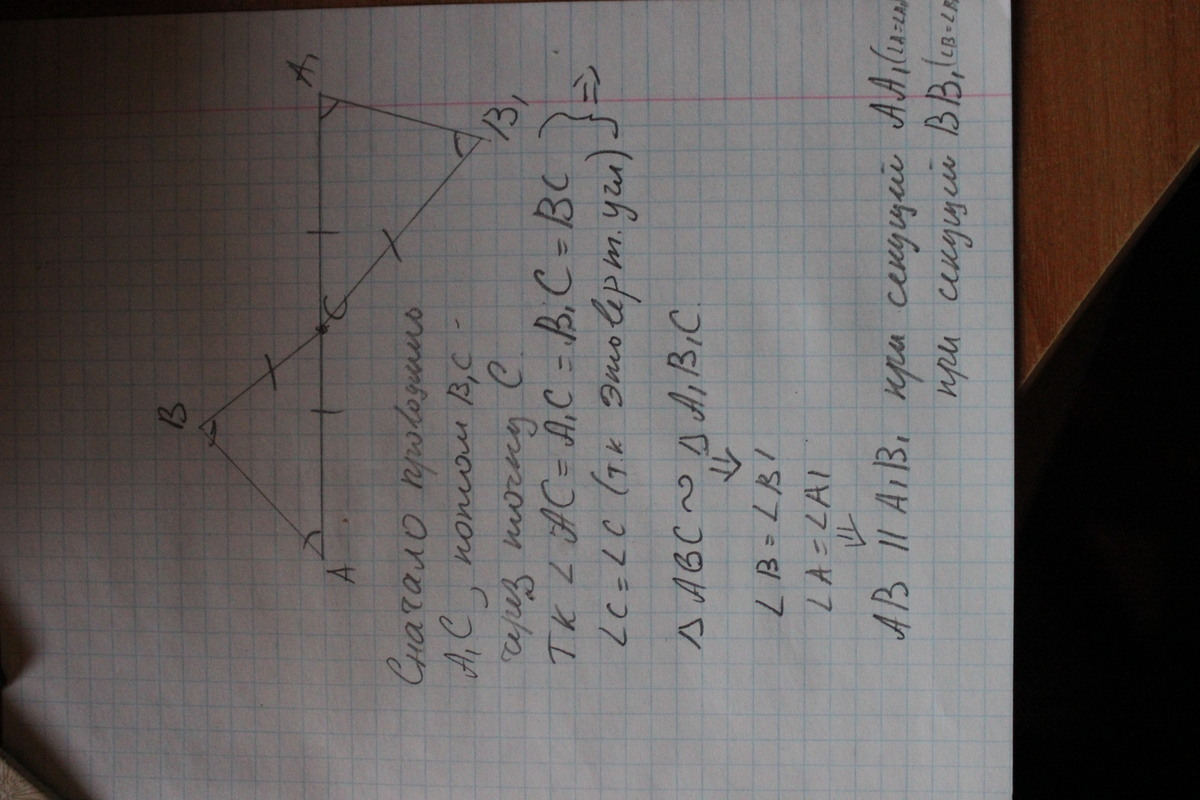 B
A
C
A₁
B₁
Сначало проводишь
A₁C, потом B₁C -
через точку C
ТК ∠ AC = A₁C = B₁C = BC } =>
∠C = ∠C (т.к это верт. угл)
△ ABC ~ △ A₁B₁C.
⇓
∠B = ∠B1
∠A = ∠A1
⇓
AB || A₁B₁ при секущий AA₁ (∠A=∠A
при секущий BB₁ (∠B=∠